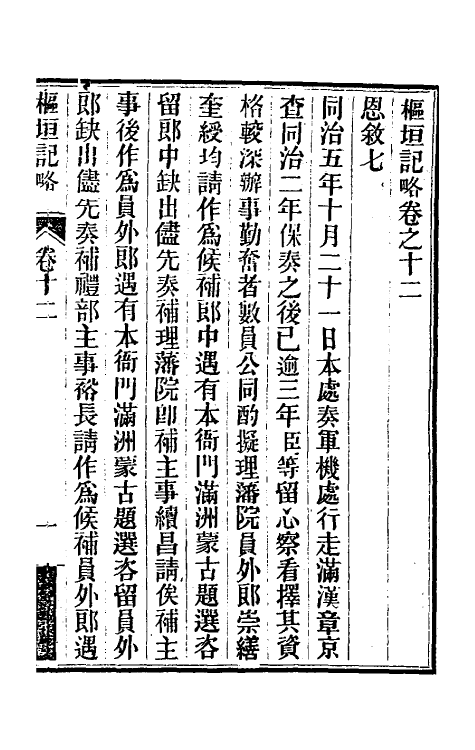 樞垣記略卷之十二
恩敘七
同治五年十月二十一日本處奏軍機處行走滿漢章京
查同治二年保奏之後已逾三年臣等留心察看擇其資
格較深辦事勤奮者數員公同酌擬理藩院員外郎崇繕
奎綬均請作為候補郎中遇有本衙門滿洲蒙古題選咨
留郎中缺出儘先奏補理藩院卽補主事續昌請俟補主
事後作為員外郎遇有本衙門滿洲蒙古題選咨留員外
郎缺出儘先奏補禮部主事裕長請作為候補員外郎遇
樞垣記略 卷十二 一